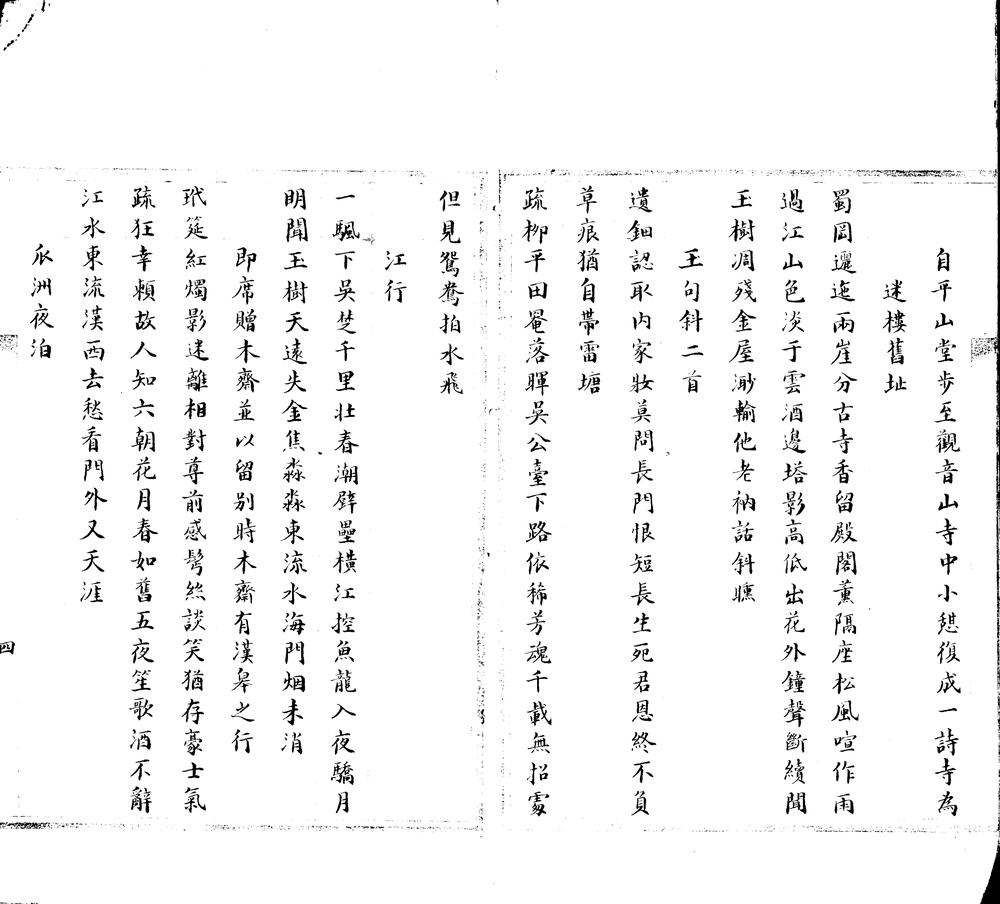 自平山堂步至觀音山寺中小憩復成一詩寺為
迷樓舊址
蜀岡邐迤兩崖分古寺香留殿閣薰隔座松風喧作雨
過江山色淡于雲酒邊塔影高低出花外鐘聲斷續聞
玉樹凋殘金屋渺輸他老衲話斜曛
玉句斜二首
遺鈿認取内家妝莫問長門恨短長生死君恩終不負
草痕猶自帶雷塘
疏柳平田罨落暉吳公臺下路依稀芳魂千載無招處
但見鴛鴦拍水飛
江行
一颿下吳楚千里壯春潮壁壘橫江控魚龍入夜驕月
明聞玉樹天遠失金焦淼淼東流水海門烟未消
即席贈木齋並以留别時木齋有漢皋之行
玳筵紅燭影迷離相對尊前感鬢絲談笑猶存豪士氣
疏狂幸賴故人知六朝花月春如舊五夜笙歌酒不辭
江水東流漢西去愁看門外又天涯
瓜洲夜泊
四